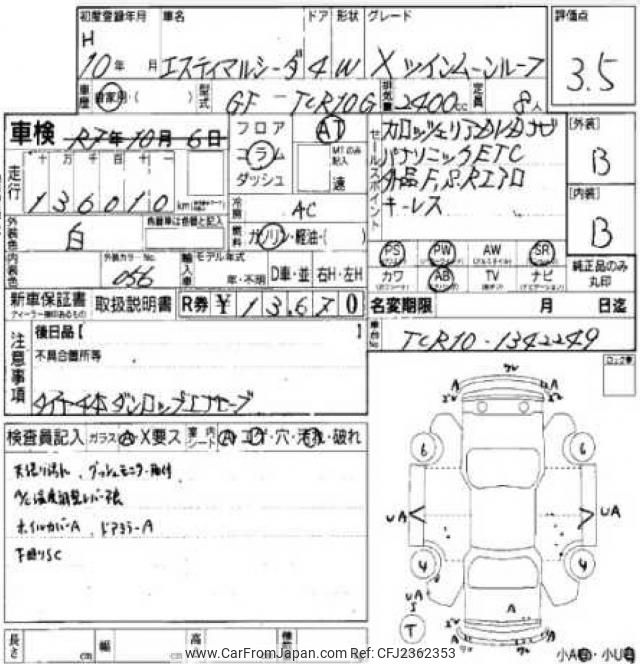 初度登録年月 車名 ドア 形状 グレード 評価点
H
10年 月 エスティマルシーダ 4 W X ツインムーンルーフ 3.5
車歴 自家用・( ) 型式 GF-TCR10G 排気量 2400cc 定員 8人
車検 R7年10月6日 フロア AT セールスポイント カロッツェリアDVDナビ [外装]
コラム MTのみ記入 パナソニックETC B
走行 十 万 千 百 十 一 ダッシュ 速 外品F,S,Rエアロ
136010 km 冷房 AC キーレス [内装]
外装色 白 色替車は色替と記入 燃料 ガソリン・軽油・( ) B
内装色 外装カラーNo. 056 輸入車 モデル年式 年・不明 D車・並 右H・左H
PS PW AW SR 純正品のみ丸印
カワ AB TV ナビ
新車保証書 取扱説明書 R券 ¥13,670 名変期限 月 日迄
ディーラー印のあるもの
注意事項 後日品【 】 車台No. TCR10-1342249
不具合箇所等
タイヤ4本 ダンロップエナセーブ
ロック車
検査員記入 ガラス A・X要ス 室内シート A・コゲ・穴・汚れ・破れ
天張り汚れ、ダッシュモニター取付
A/C温度調整レバー
ホイルカバーA、ドアミラーA
下廻りSC
6 6
UA UA
4 4
UA
S
T
A
A
長さ cm 幅 cm 高 cm
小A・小U
CarFromJapan.com - CFJ2362353